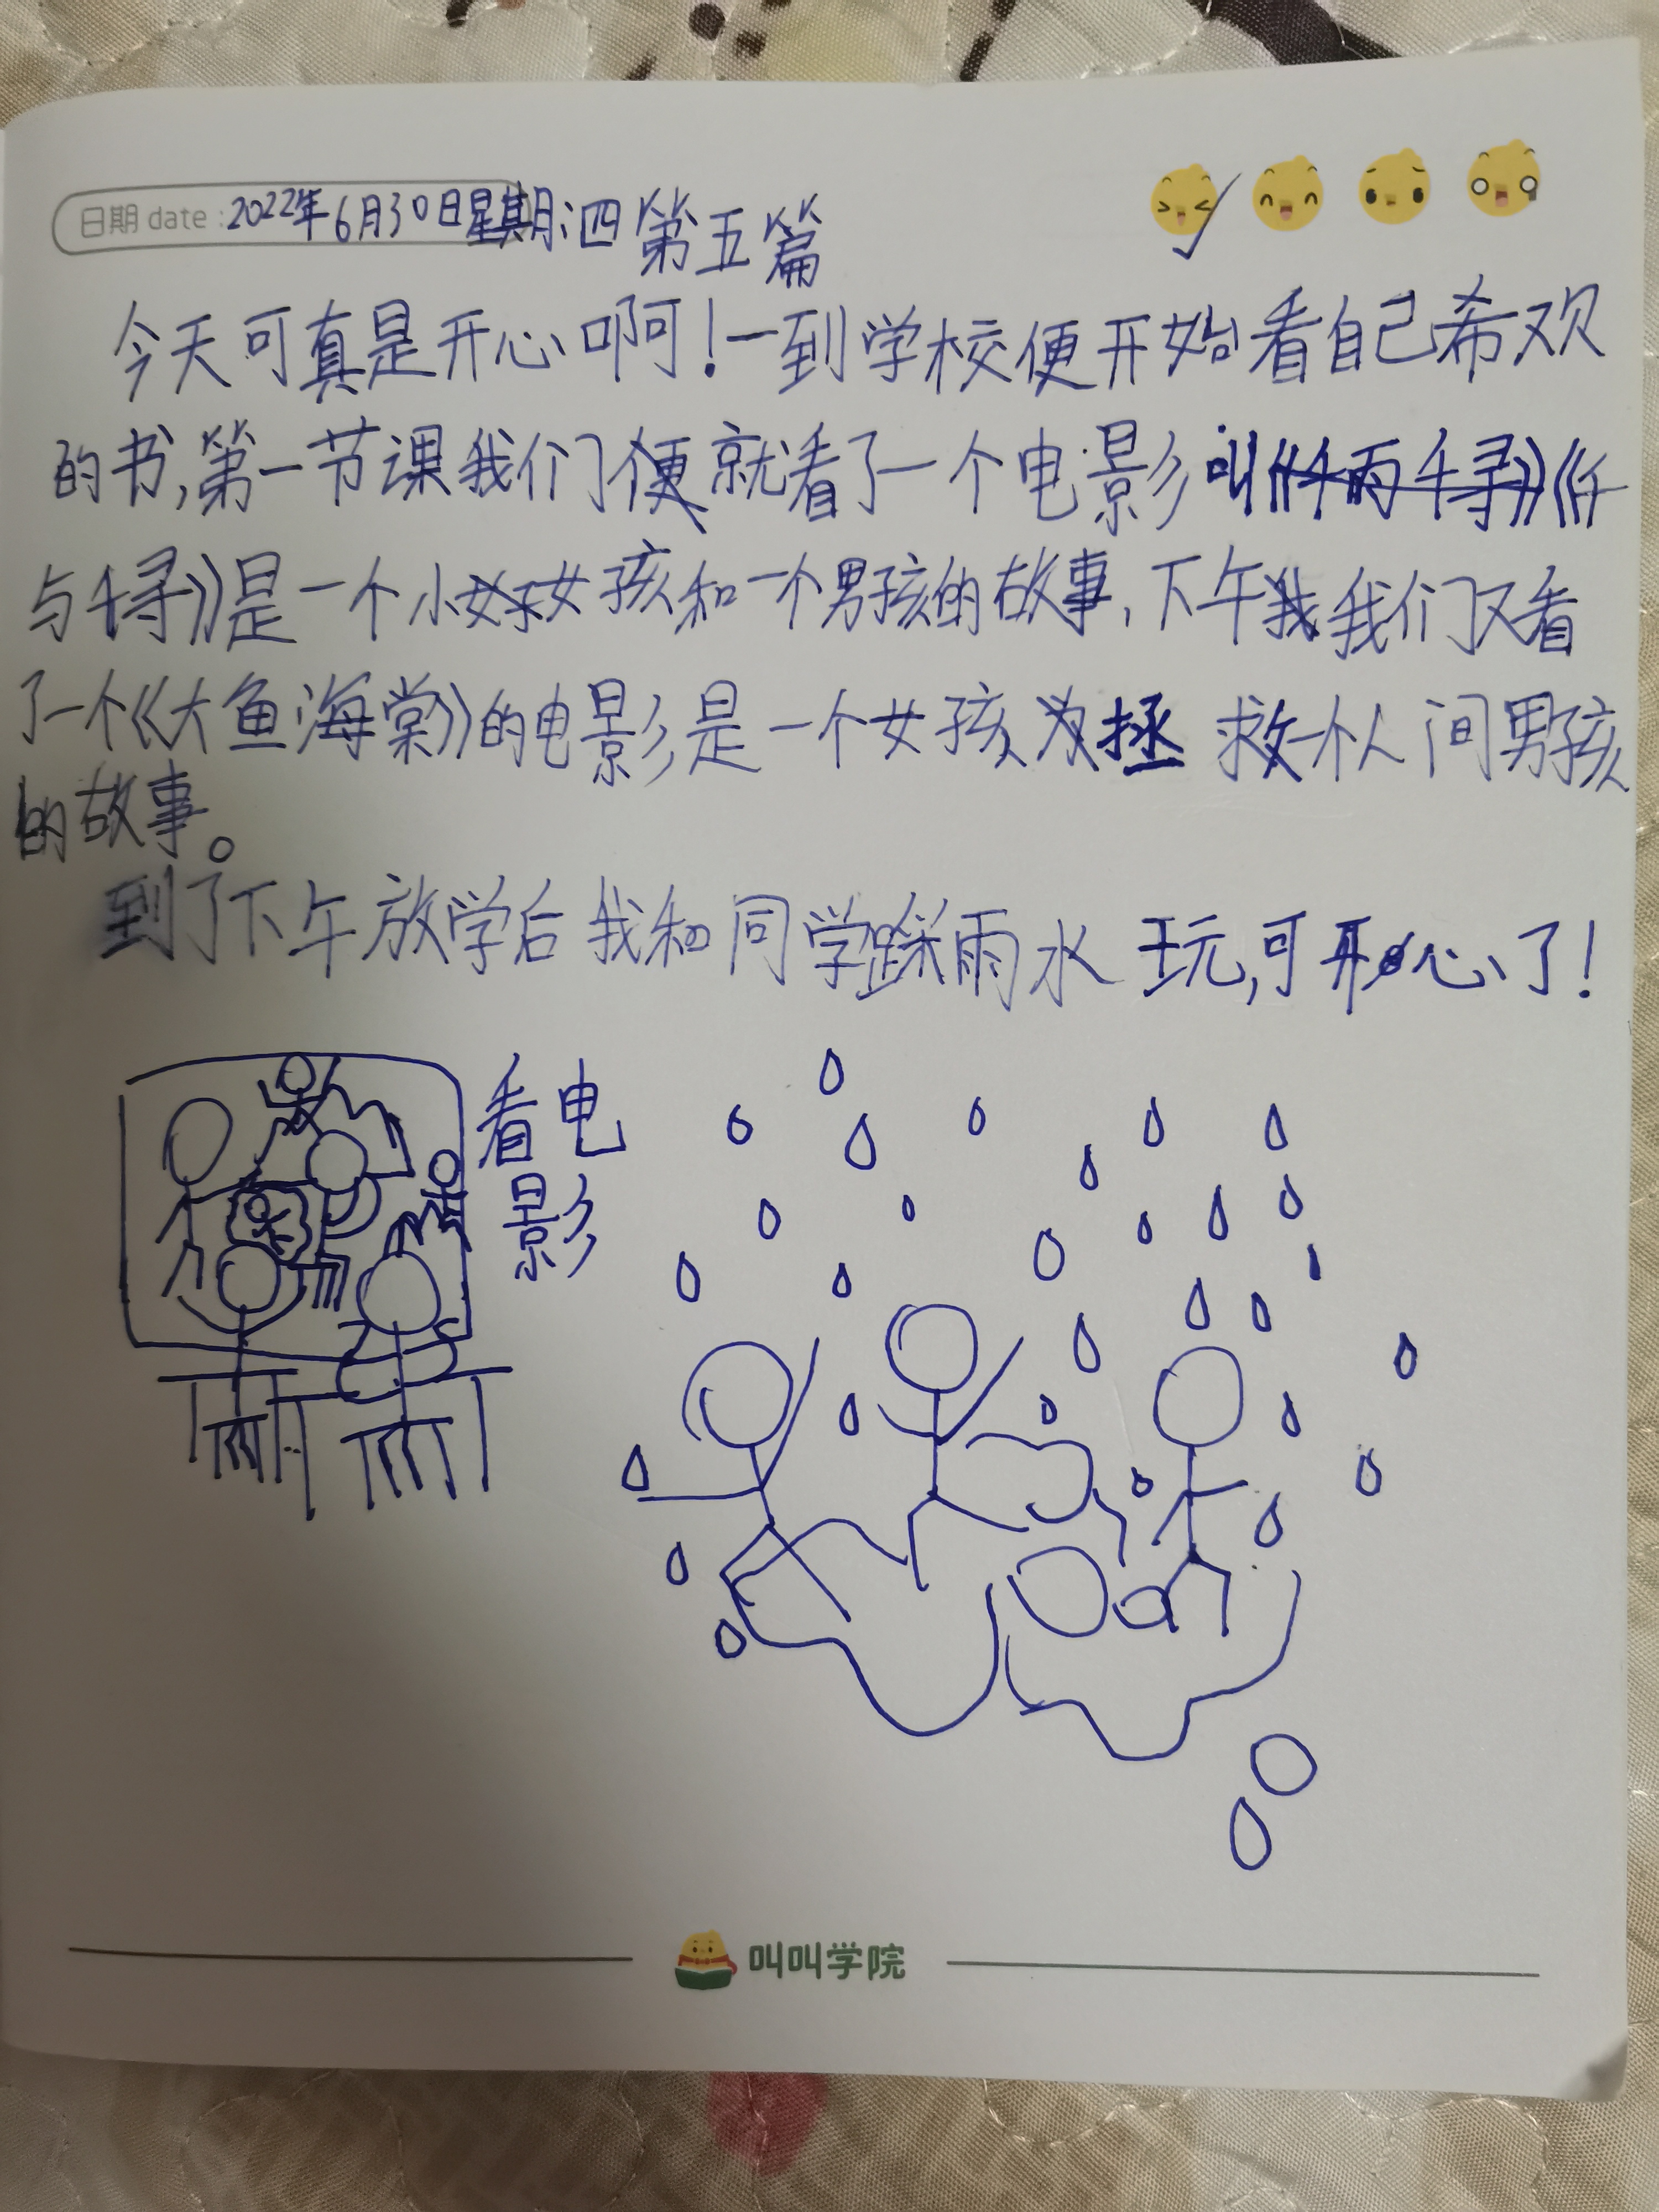 日期 date : 2022年6月30日星期:四 第五篇
今天可真是开心啊!一到学校便开始看自己希欢
的书,第一节课我们便就看了一个电影叫《千
与千寻》是一个小女孩和一个男孩的故事,下午我们又看
了一个《大鱼海棠》的电影,是一个女孩为拯救一个人间男孩
的故事。
到了下午放学后我和同学踩雨水玩,可开心了!
看电
影
叫叫学院